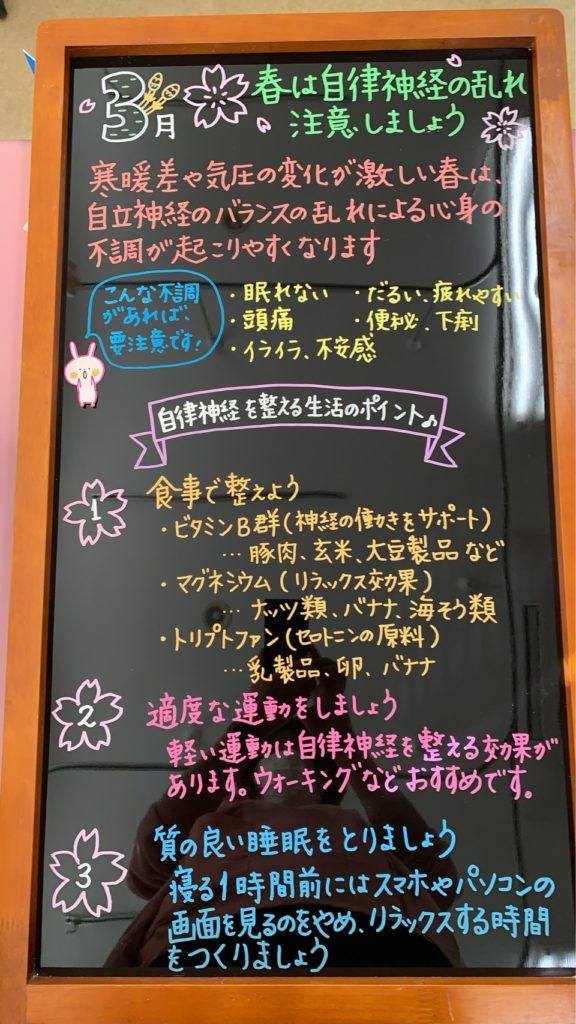 3月
春は自律神経の乱れ
注意しましょう
寒暖差や気圧の変化が激しい春は、
自立神経のバランスの乱れによる心身の
不調が起こりやすくなります
こんな不調
があれば、
要注意です!
・眠れない ・だるい、疲れやすい
・頭痛 ・便秘、下痢
・イライラ、不安感
自律神経を整える生活のポイント♪
1 食事で整えよう
・ビタミンB群(神経の働きをサポート)
… 豚肉、玄米、大豆製品など
・マグネシウム(リラックス効果)
… ナッツ類、バナナ、海そう類
・トリプトファン(セロトニンの原料)
…乳製品、卵、バナナ
2 適度な運動をしましょう
軽い運動は自律神経を整える効果が
あります。ウォーキングなどおすすめです。
3 質の良い睡眠をとりましょう
寝る1時間前にはスマホやパソコンの
画面を見るのをやめ、リラックスする時間
をつくりましょう